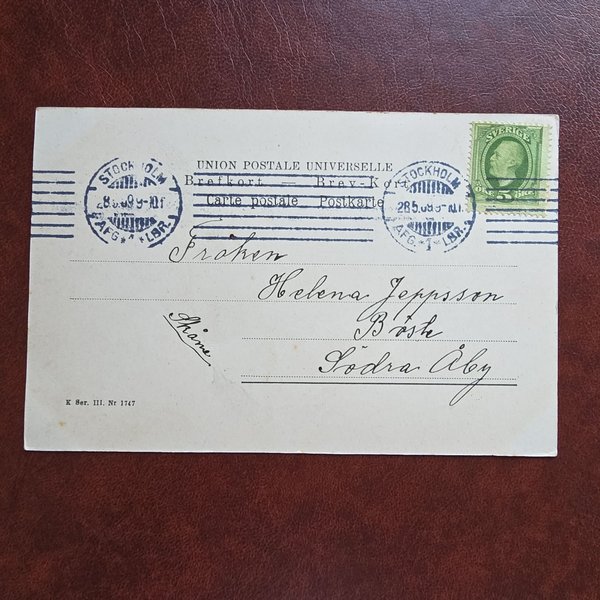 SVERIGE
5
UNION POSTALE UNIVERSELLE
Brefkort — Brev-Kort
Carte postale Postkarte
STOCKHOLM
8.5.09 9-10 F
AFG.*1*LBR.
STOCKHOLM
28.5.09 9-10 F
AFG.*1*LBR.
Fröken
Helena Jeppsson
Böste
Södra Åby
Skåne
K Ser. III. Nr 1747